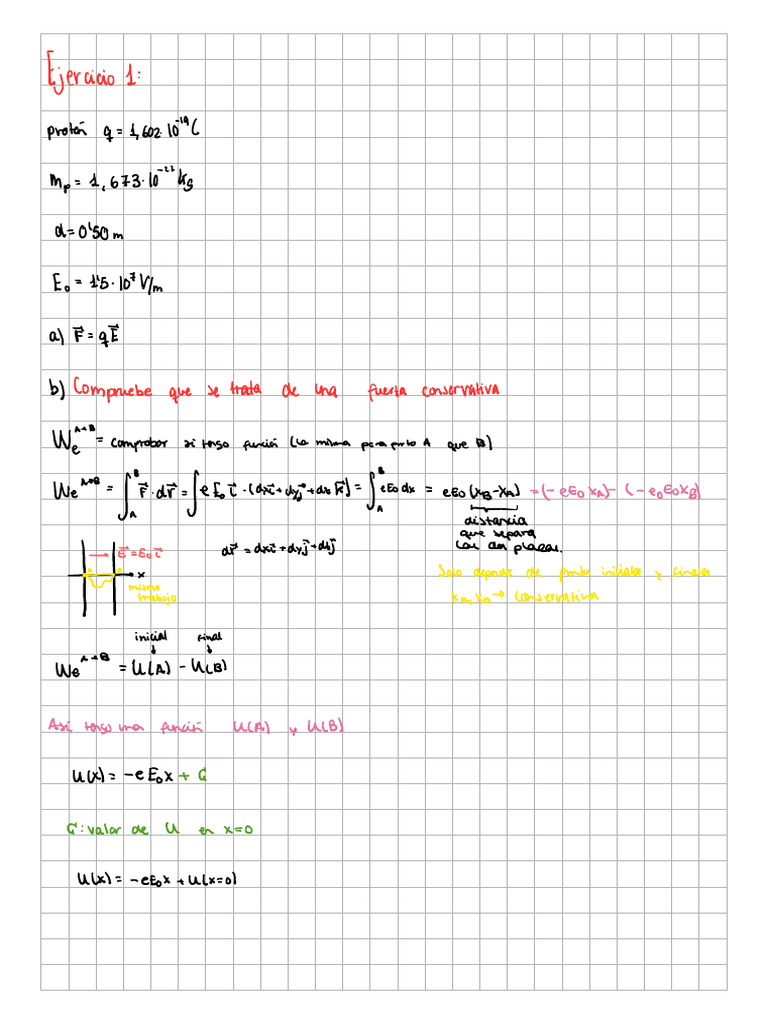 Ejercicio 1:
protón q = 1,602·10⁻¹⁹ C
mₚ = 1,673·10⁻²⁷ kg
d = 0'50 m
E₀ = 1'5·10⁷ V/m
a) F⃗ = qE⃗
b) Compruebe que se trata de una fuerza conservativa
Wₑ^(A→B) = comprobar si tengo función (la misma para punto A que B)
Wₑ^(A→B) = ∫_A^B F⃗·dr⃗ = ∫ e E₀ i⃗ · (dx i⃗ + dy j⃗ + dz k⃗) = ∫_A^B eE₀ dx = eE₀ (x_B - x_A) = (-eE₀x_A) - (-e₀E₀x_B)
distancia
que separa
las dos placas.
E⃗ = E₀ i⃗
dr⃗ = dx i⃗ + dy j⃗ + dz j⃗
x
mismo
trabajo
Solo depende de punto iniciales y finales
x_A, x_B → conservativa
inicial final
Wₑ^(A→B) = U(A) - U(B)
Así, tengo una función U(A) y U(B)
U(x) = -e E₀ x + C
C: valor de U en x=0
U(x) = -eE₀x + U(x=0)